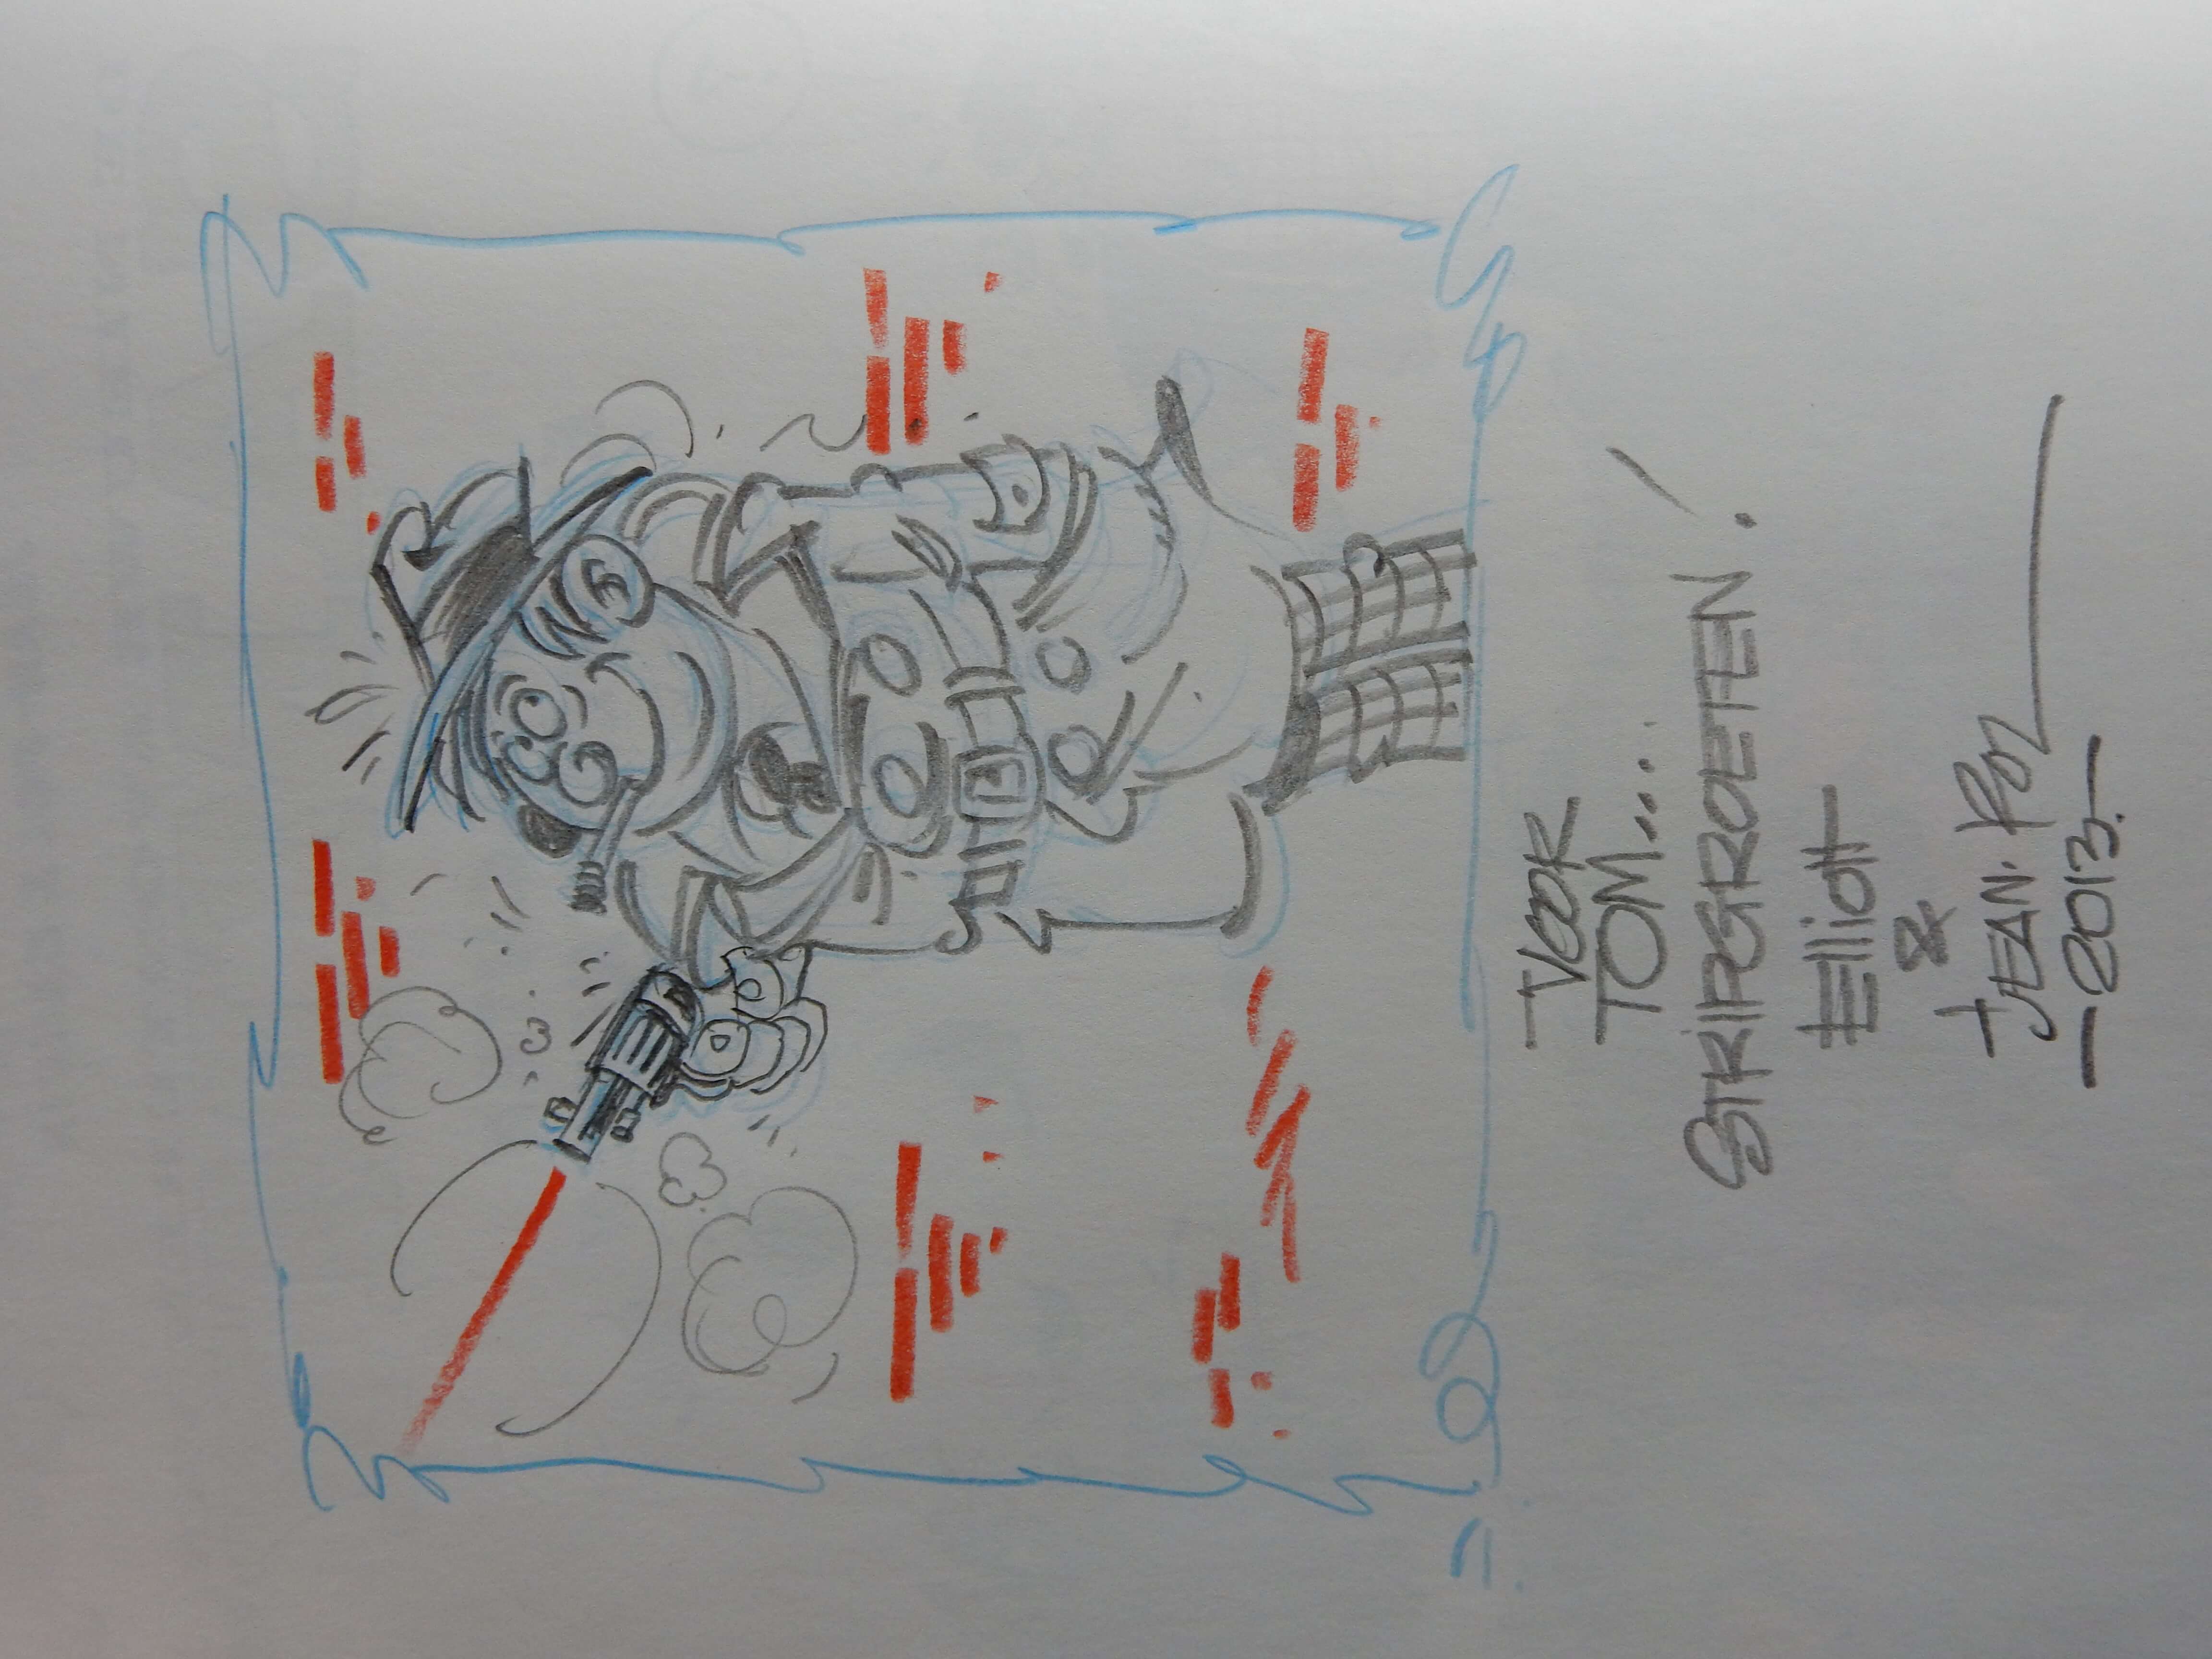 VOOR
TOM....
STRIPGROETEN!
Elliott
&
JEAN-POL
-2013.-